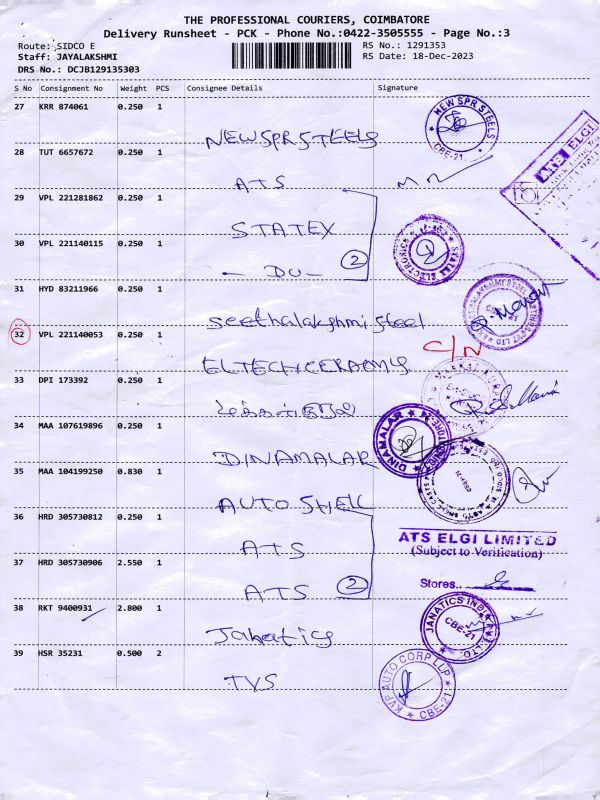 THE PROFESSIONAL COURIERS, COIMBATORE
Delivery Runsheet - PCK - Phone No.:0422-3505555 - Page No.:3
Route: SIDCO E
RS No.: 1291353
Staff: JAYALAKSHMI
RS Date: 18-Dec-2023
DRS No.: DCJB129135303
S No Consignment No Weight PCS Consignee Details Signature
27 KRR 874061 0.250 1 NEW SPR STEELS
NEW SPR STEELS CBE-21.
28 TUT 6657672 0.250 1 ATS
ATS ELGI
29 VPL 221281862 0.250 1 STATEX
30 VPL 221140115 0.250 1 - DO - 2
31 HYD 83211966 0.250 1 Seethalakshmi Steel
32 VPL 221140053 0.250 1 ELTECH CERAMYS
C/N
33 DPI 173392 0.250 1
34 MAA 107619896 0.250 1 DINAMALAR
DINAMALAR
35 MAA 104199250 0.830 1 AUTO SHELL
36 HRD 305730812 0.250 1 ATS
ATS ELGI LIMITED
(Subject to Verification)
37 HRD 305730906 2.550 1 ATS 2
Stores..
38 RKT 9400931 2.800 1 Janatics
JANATICS INDIA P LTD CBE-21
39 HSR 35231 0.500 2 TVS
KVP AUTO CORP LLP CBE-21